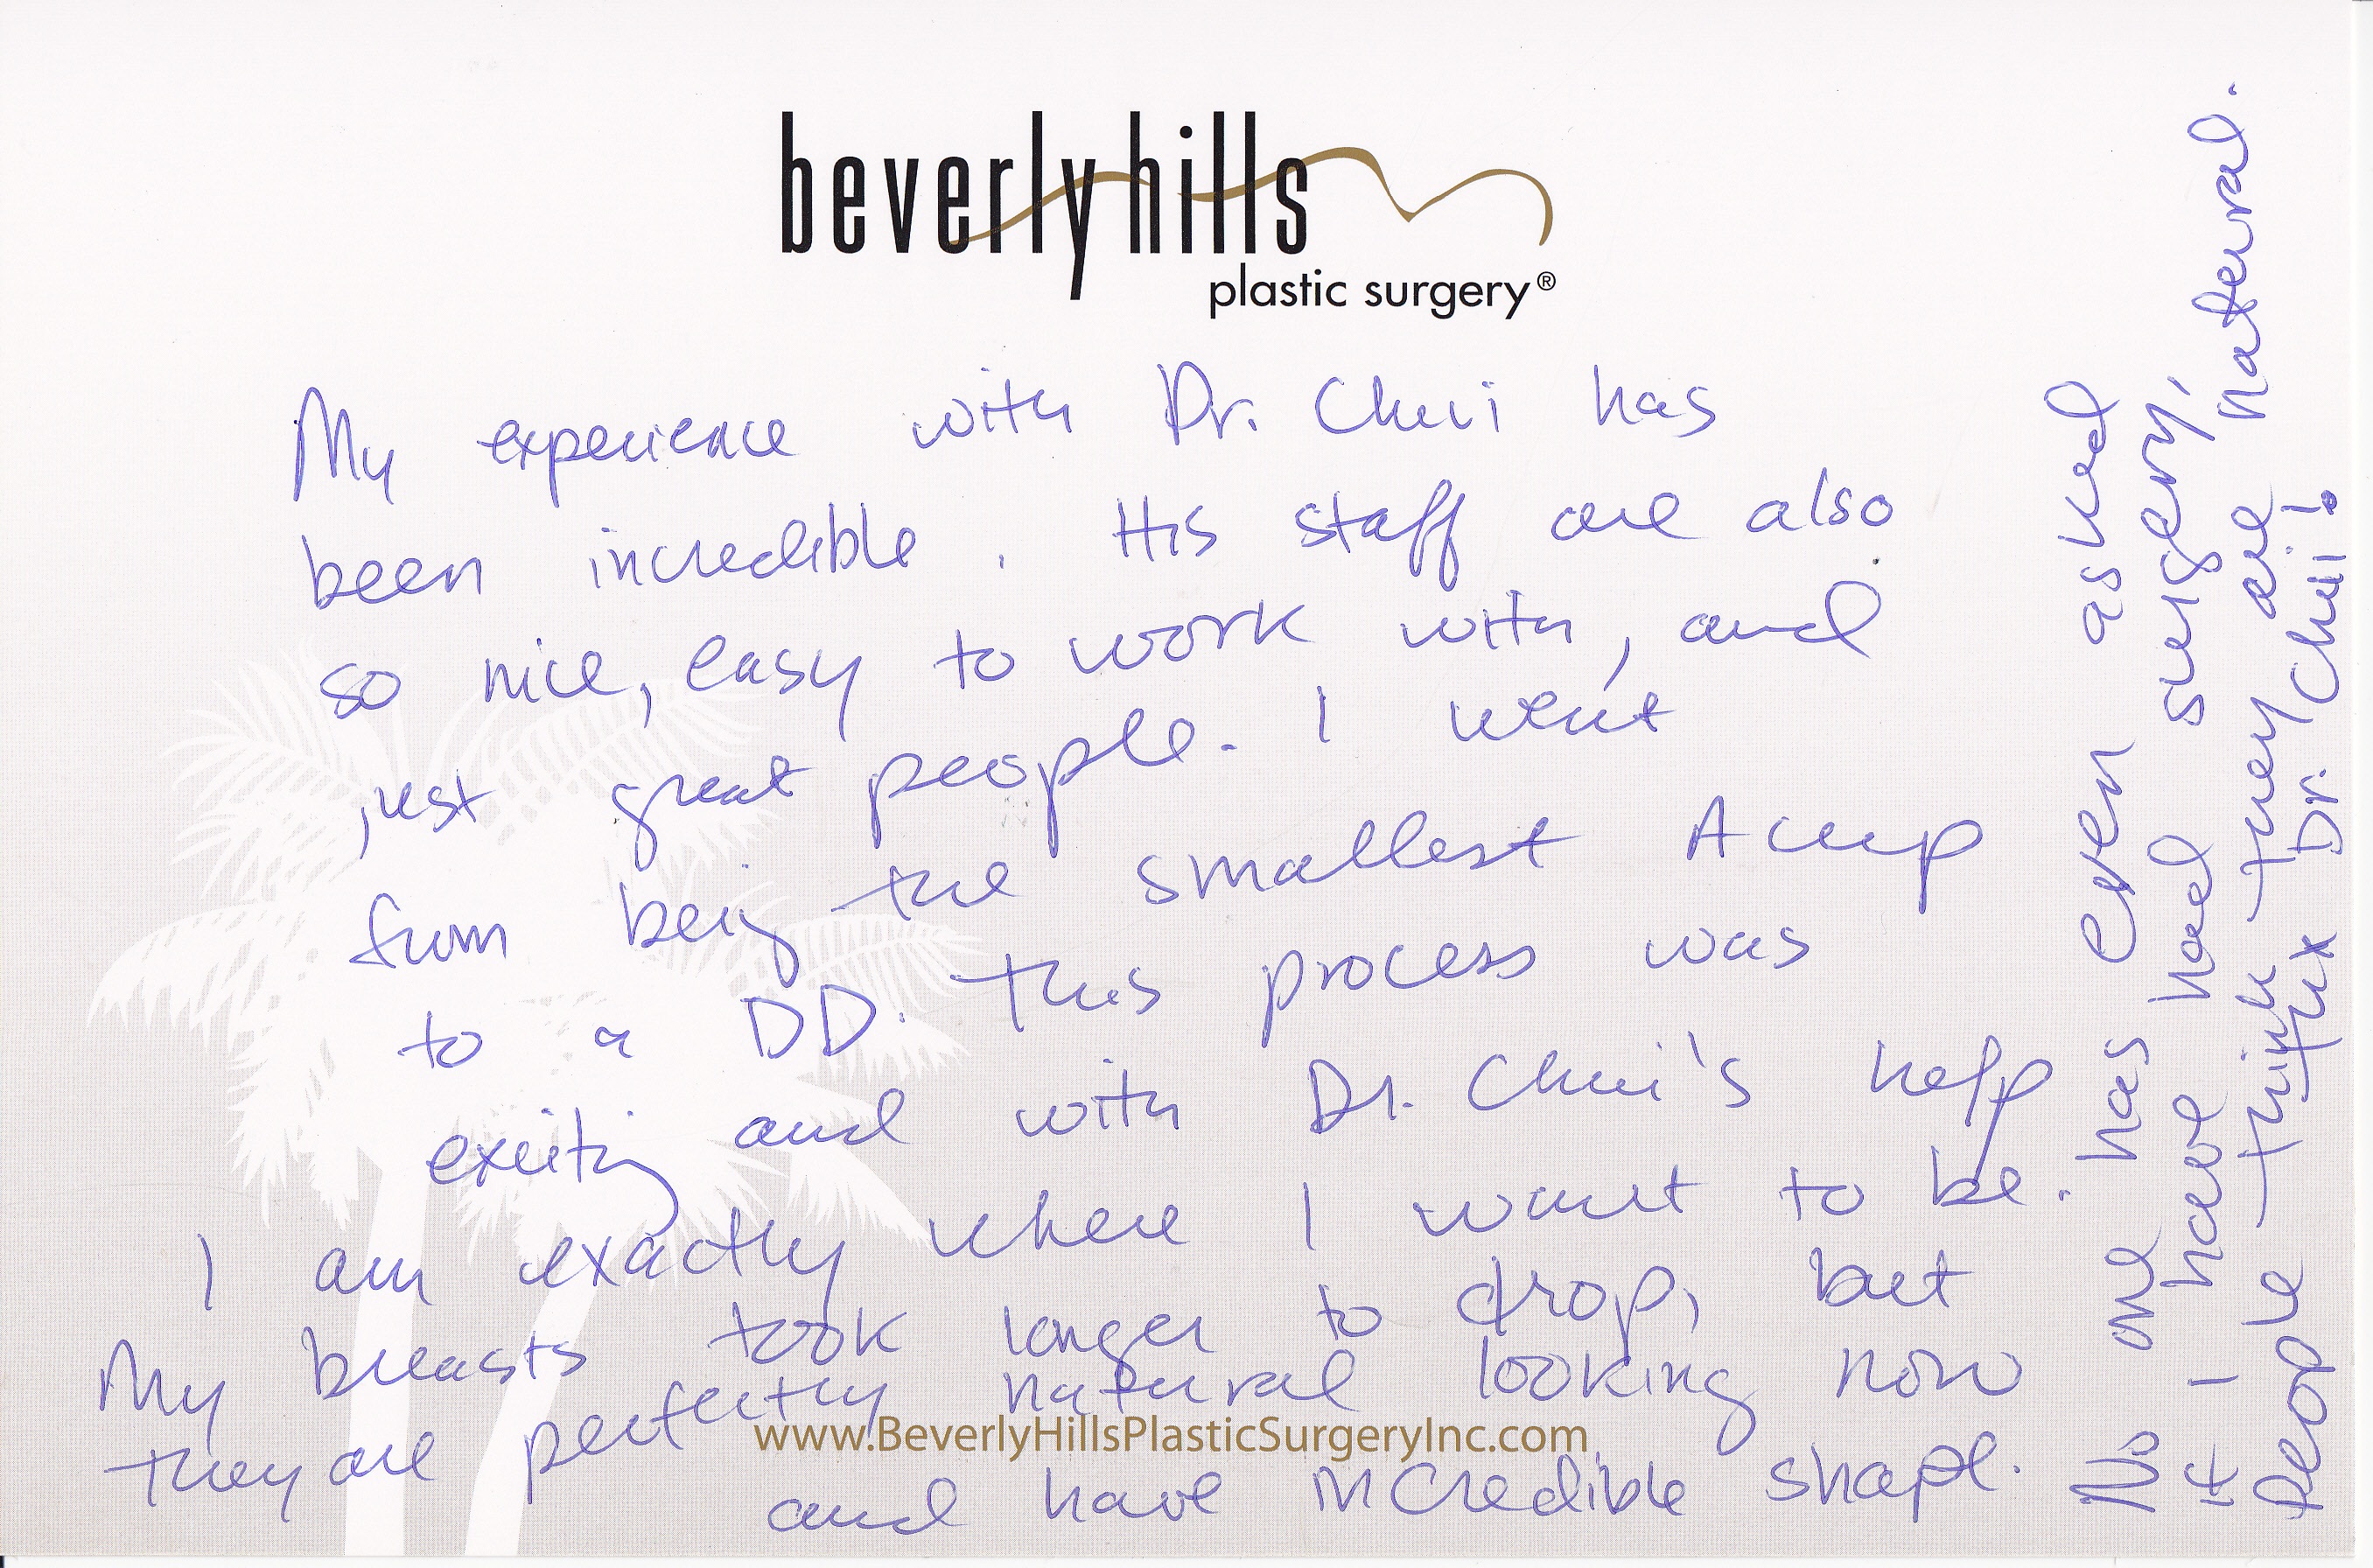 beverly hills
plastic surgery®
My experience with Dr. Chui has
been incredible. His staff are also
so nice, easy to work with, and
just great people. I went
from being the smallest A cup
to a DD. This process was
exciting and with Dr. Chui's help
I am exactly where I want to be.
My breasts took longer to drop, but
they are perfectly natural looking now
www.BeverlyHillsPlasticSurgeryInc.com
and have incredible shape.
No one has even asked
if I have had surgery,
people think they are natural.
Thx Dr. Chui!